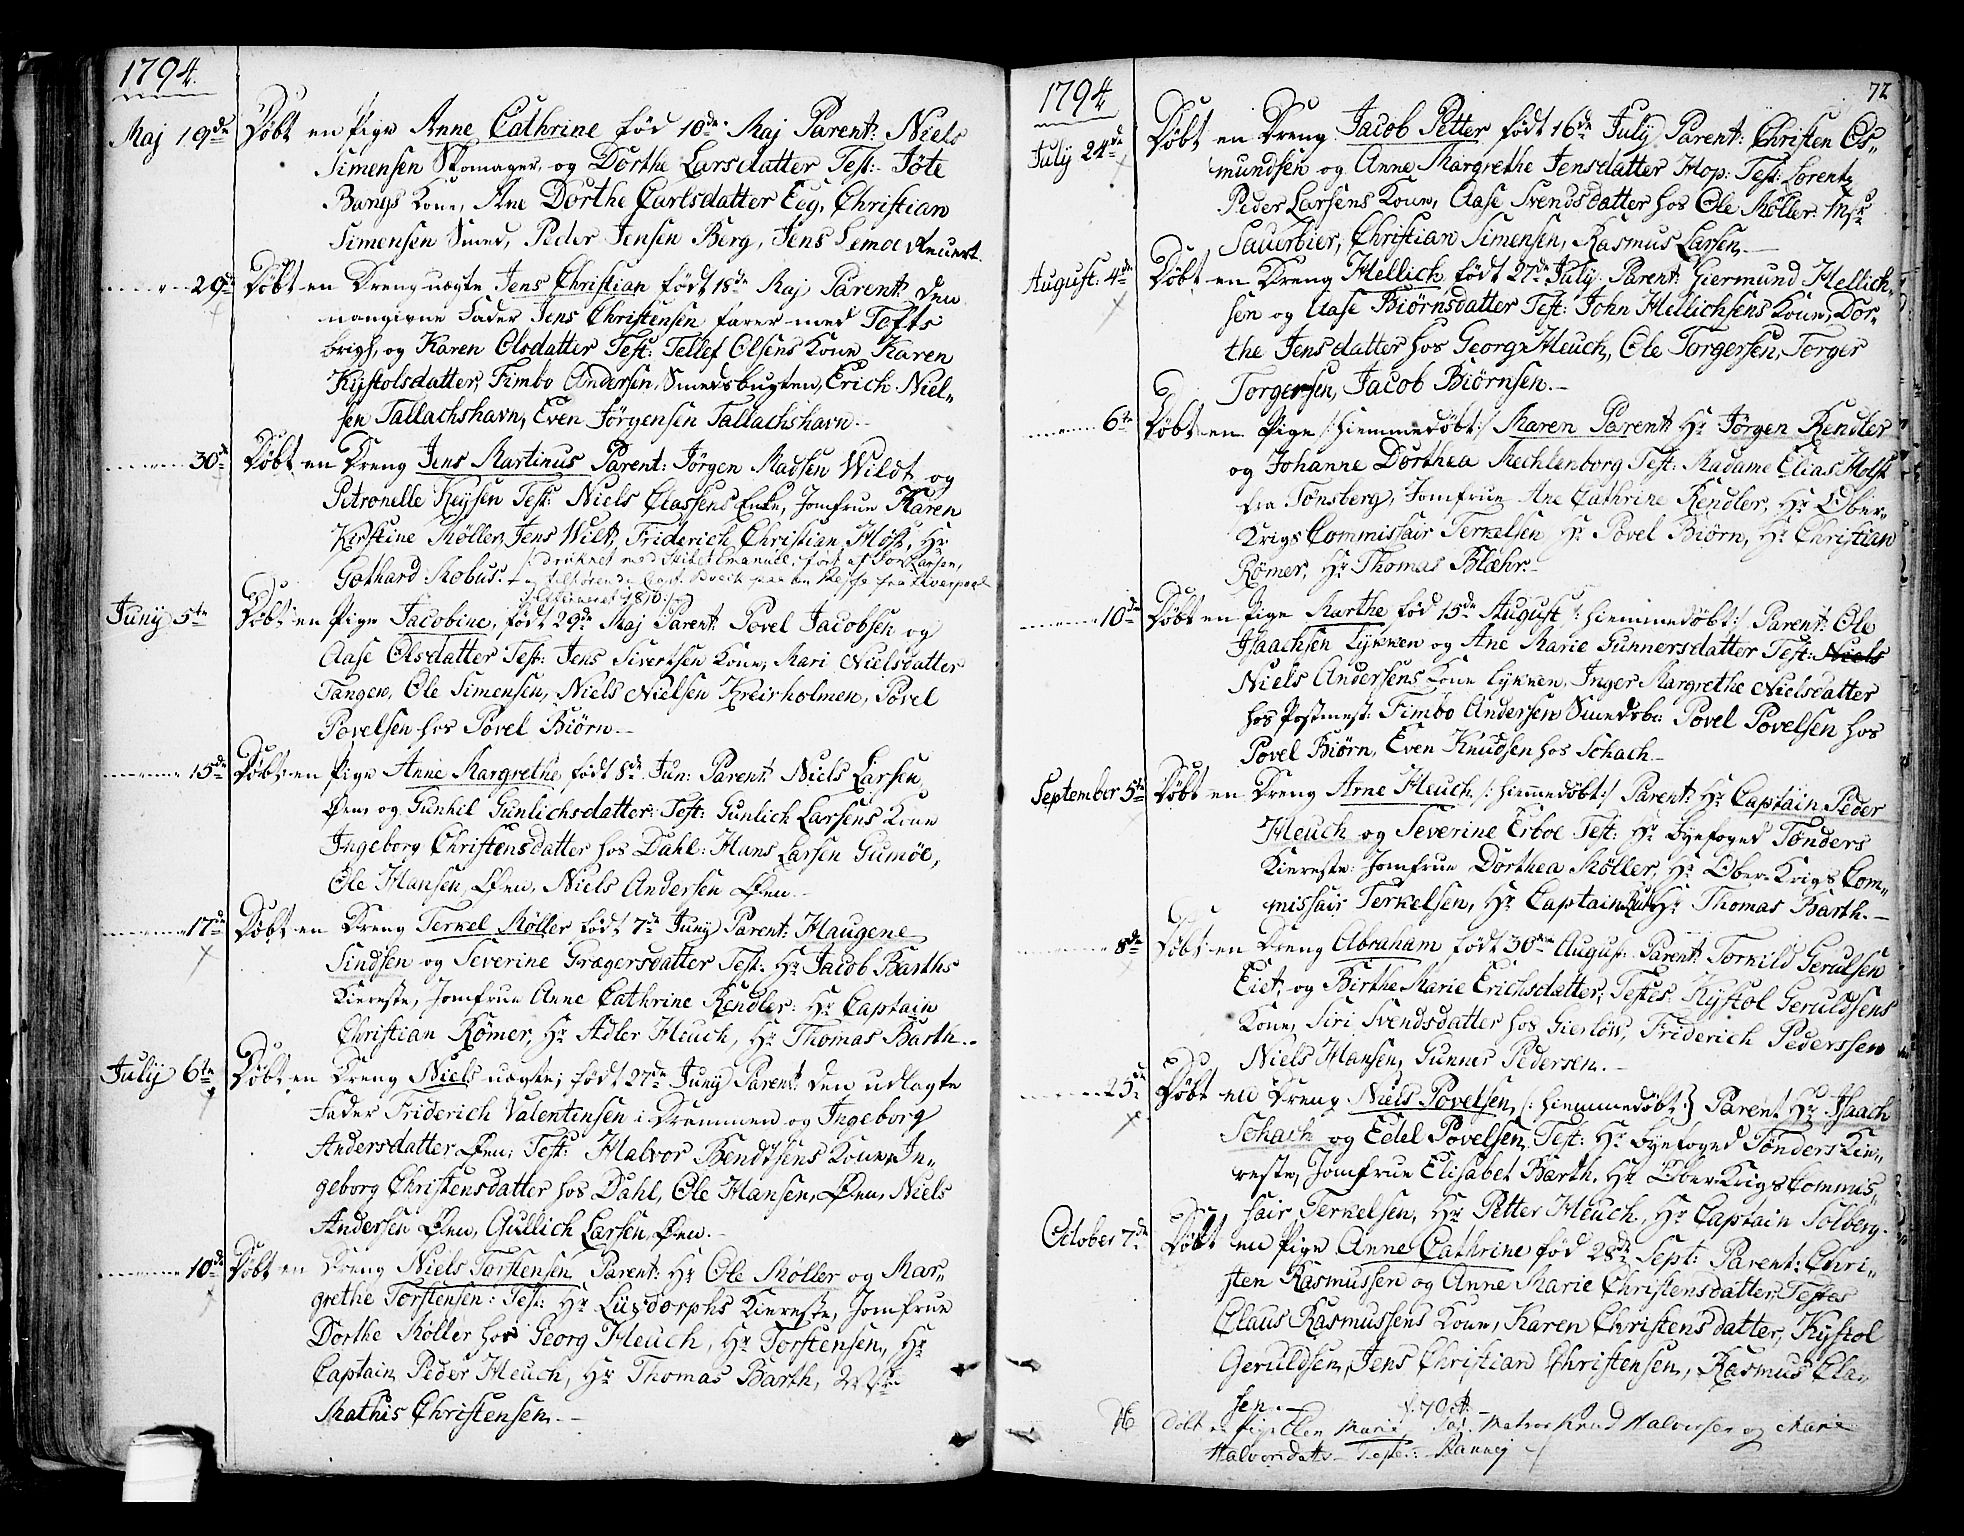 1794.
Maj 19de Døbt en Pige Anne Cathrine fød 10de Maj Parent: Niels
Simensen Skomager, og Dorthe Larsdatter Test: Tøte
Bungs Kone, Ane Dorthe Carlsdatter Eeg, Christian
Simensen Smed, Peder Jensen Berg, Jens Lemoe
29de Døbt en Dreng uægte Jens Christian født 18de Maj Parent: den
angivne Fader Jens Christensen farer med Tofts
brigh, og Karen Olsdatter Test: Tellef Olsens Kone Karen
Kystolsdatter, Fimbo Andersen, Smedsbugten, Erich Niel-
sen Tallachshavn, Even Jørgensen Tallachshavn.-
30te Døbt en Dreng Jens Martinus Parent: Jørgen Madsen Wildt og
Petronelle Keysen Test: Niels Classens Enke, Jomfrue Karen
Kirstine Møller, Jens Wilt, Friderich Christian Høst, Hr
druknet med Skibet Emanuel, ført af
Gothard Mobus.
Juny 5te Døbt en Pige Jacobine, født 29de Maj Parent: Povel Jacobsen og
Aase Olsdatter Test: Jens Sivertsen Kone, Mari Nielsdatter
Tangen, Ole Simensen, Niels Nielsen Kreirholmen, Povel
Povelsen hos Povel Biørn.-
15de Døbt en Pige Anne Margrethe, født 8de Jun: Parent: Niels Larsen
Øen, og Gunhil Gunlichsdatter: Test: Gunlich Larsens Kone
Ingeborg Christensdatter hos Dahl: Hans Larsen Gumøe,
Ole Hansen Øen, Niels Andersen Øen.-
17de Døbt en Dreng Terkel Møller født 7de Juny Parent: Haugene
Sindsen og Severine Grægersdatter Test: Hr Jacob Barths
Kiereste, Jomfrue Anne Cathrine Kendler: Hr Captain
Christian Rømer, Hr Adler Heuch, Hr Thomas Barth.-
July 6te Døbt en Dreng Niels uægte, født 27de Juny Parent: den udlagte
Fader Friderich Valentinsen i Drammen og Ingeborg
Andersdatter Øen, Test: Halvor Bendtsens Kone, In-
geborg Christensdatter hos Dahl, Ole Hansen, Øen, Niels
Andersen Øen, Gullich Larsen, Øen.-
10de Døbt en Dreng Niels Torstensen Parent: Hr Ole Møller og Mar-
grethe Torstensen: Test: Hr Luxdorphs Kiereste, Jomfrue
Dorthe Møller hos Georg Heuch, Hr Torstensen, Hr
Captain Peder Heuch, Hr Thomas Barth,
Mathis Christensen.-
1794
72
July 24de Døbt en Dreng Jacob Petter født 16de July Parent: Christen Os-
mundsen og Anne Margrethe Jensdatter Hop: Test: Lorentz
Peder Larsens Kone, Aase Svendsdatter hos Ole Møller:
Sauerbier, Christian Simensen, Rasmus Larsen.-
August: 4de Døbt en Dreng Hellich, født 27de July Parent: Giermund Hellich-
sen og Aase Biørnsdatter Test: John Hellichsens Kone, Dor-
the Jensdatter hos Georg Heuch, Ole Torgersen, Torger
Torgersen, Jacob Biørnsen.-
6te Døbt en Pige /:hiemmedøbt:/ Maren Parent: Hr Jørgen Kendler
og Johanne Dorthea Mechlenborg Test: Madame Elias Holst
fra Tønsberg, Jomfrue Ane Cathrine Kendler, Hr Ober-
Krigs Commissair Terkelsen Hr Povel Biørn, Hr Christian
Rømer, Hr Thomas Blæhr.-
10de Døbt en Pige Marthe fød 15de August /:hiemmedøbt:/ Parent: Ole
Isaachsen Lykken og Ane Marie Gunnersdatter Test: Niels
Niels Andersens Kone Lykken, Inger Margrethe Nielsdatter
hos Postmest: Fimbo Andersen Smedsb: Povel Povelsen hos
Povel Biørn, Even Knudsen hos Schach.-
September 5te Døbt en Dreng Arne Heuch /:hiemedøbt:/ Parent: Hr Captain Peder
Heuch og Severine Erboe Test: Hr Byefoged Tønders
Kiereste: Jomfrue Dorthea Møller, Hr Ober-Krigs Com-
missair Terkelsen, Hr Captain Hr Thomas Barth.-
8de Døbt en Dreng Abraham født 30te August: Parent: Torkild Gerulsen
Eiet, og Birthe Marie Erichsdatter, Testes: Kystol Geruldsens
Kone, Siri Svendsdatter hos Gierløv, Friderich Pederssen
Niels Hansen, Gunner Pedersen.-
25de Døbt en Dreng Niels Povelsen, /:hiemmedøbt:/ Parent Hr Isaach
Schach og Edel Povelsen, Test: Hr Byefoged Tønders Kie-
reste, Jomfrue Elisabet Barth, Hr Ober-Krigs Commis-
sair Terkelsen, Hr Petter Heuch, Hr Captain Solberg.
October 7de Døbt en Pige Anne Cathrine, fød 28de Sept: Parent: Chri-
sten Rasmussen og Anne Marie Christensdatter, Testes
Claus Rasmussens Kone, Karen Christensdatter, Kystol
Geruldsen, Jens Christian Christensen, Rasmus Cla-
sen.-
Døbt en Pige Ellen Marie Knud Halvorsen og Marie
Halvorsdatt- Testes: Ranney